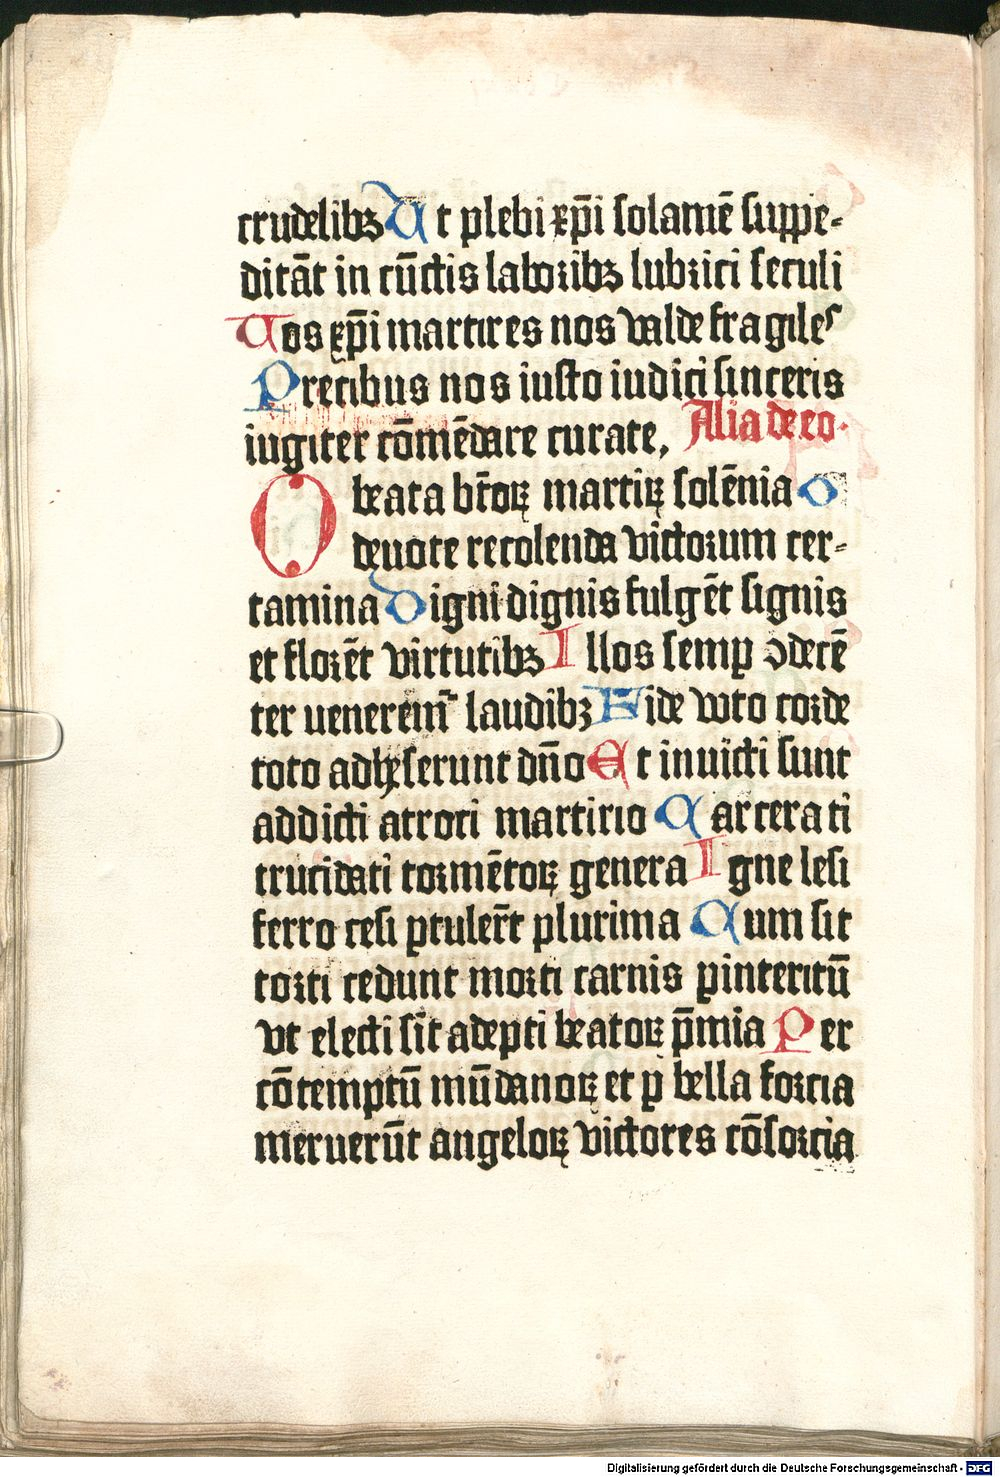 crudelibꝫ Ut plebi xp̄i solamē suppe-
ditāt in cūctis laboribꝫ lubrici seculi
Uos xp̄i martires nos valde fragiles
Precibus nos iusto iudici sinceris
iugiter cōmēdare curate, Alia de eo.
O beata btōꝝ martiꝝ solēnia O
deuote recolenda victorum cer-
tamina Digni dignis fulgēt signis
et florēt virtutibꝫ Illos semꝑ ꝯdecē
ter uenerem̃ laudibꝫ Fide voto corde
toto adheserunt dño Et inuicti sunt
addicti atroci martirio Carcerati
trucidati tormētoꝝ genera Igne lesi
ferro cesi ꝑtulert̄ plurima Cum sit
torti cedunt morti carnis ꝑ interitū
vt electi sīt adepti beatoꝝ p̄mia Per
cōtemptū mūdanoꝝ et ꝑ bella forcia
meruerūt angeloꝝ victores cōsorcia
Digitalisierung gefördert durch die Deutsche Forschungsgemeinschaft - DFG